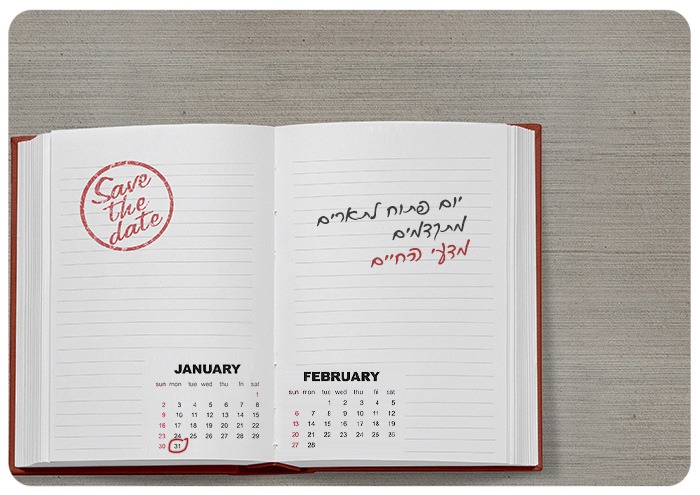 Save
the
date
יום פתוח לתארים
מתקדמים
מדעי החיים
JANUARY
sun mon tue wed thu fri sat
1
2 3 4 5 6 7 8
9 10 11 12 13 14 15
16 17 18 19 20 21 22
23 24 25 26 27 28 29
30 31
FEBRUARY
sun mon tue wed thu fri sat
1 2 3 4 5
6 7 8 9 10 11 12
13 14 15 16 17 18 19
20 21 22 23 24 25 26
27 28